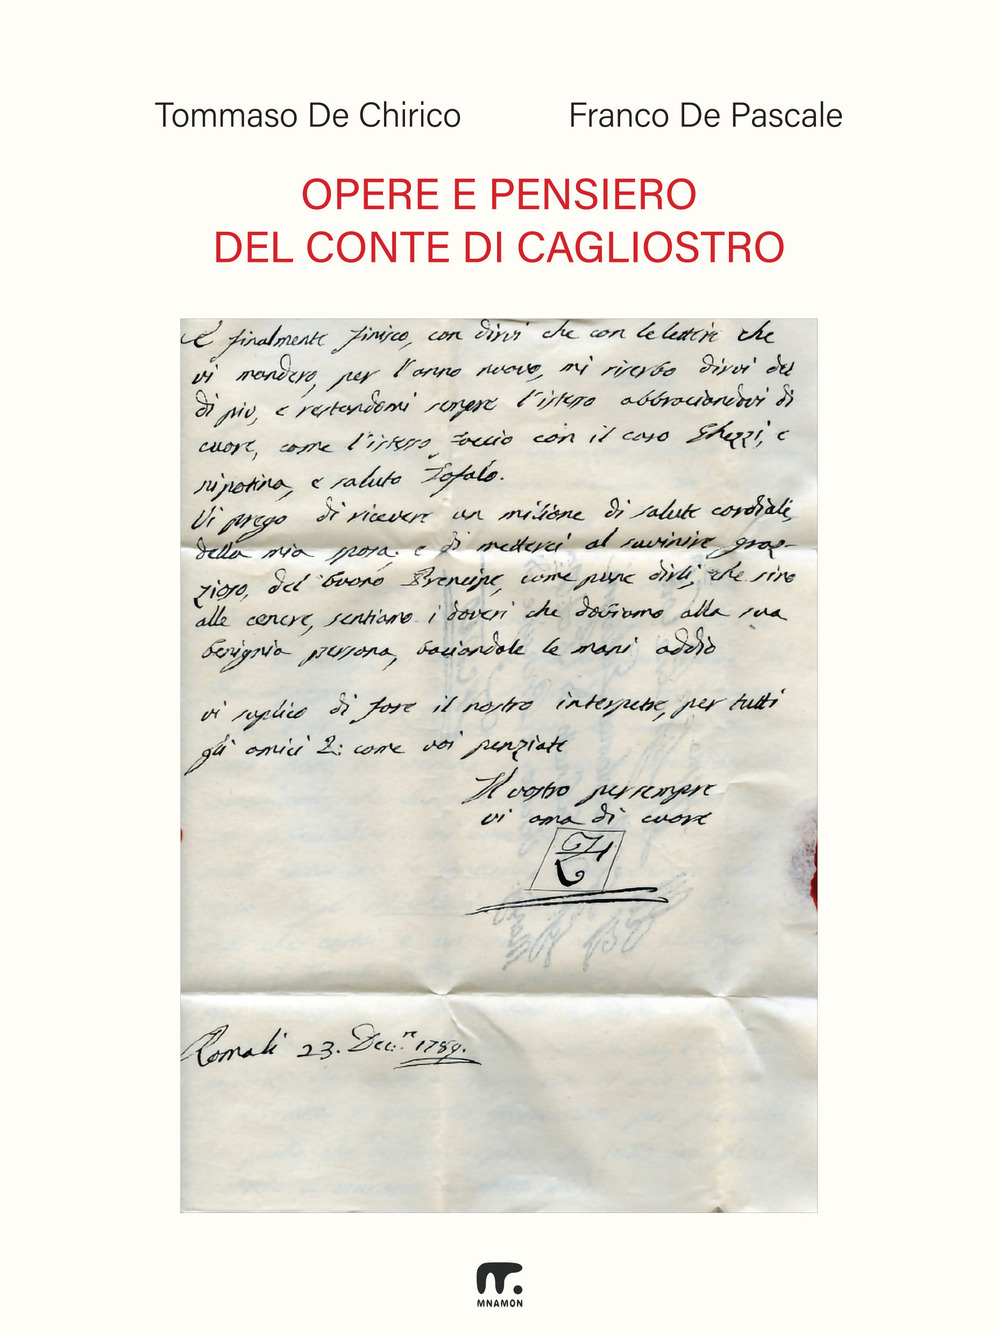 Tommaso De Chirico Franco De Pascale
OPERE E PENSIERO
DEL CONTE DI CAGLIOSTRO
E finalmente finisco, con dirvi che con le lettere che
vi manderò, per l'anno nuovo, mi riserbo dirvi del
di piu, e restandomi sempre l'istesso abbraciandovi di
cuore, come l'istesso faccio con il caro Ghezzi, e
nipotina, e saluto
Vi prego di ricevere un milione di salute cordiali,
della mia sposa. e di metterci al suvinire graz-
zioso, del buono Prencipe, come pure dirli, che sino
alle cenere, sentiamo i doveri che doviamo alla sua
benignia persona, baciandole le mani addio
vi suplico di fare il nostro interpetre, per tutti
gli amici &: come voi penziate
Il vostro per sempre
vi ama di cuore
Roma li 23. Dec.r 1789.
MNAMON